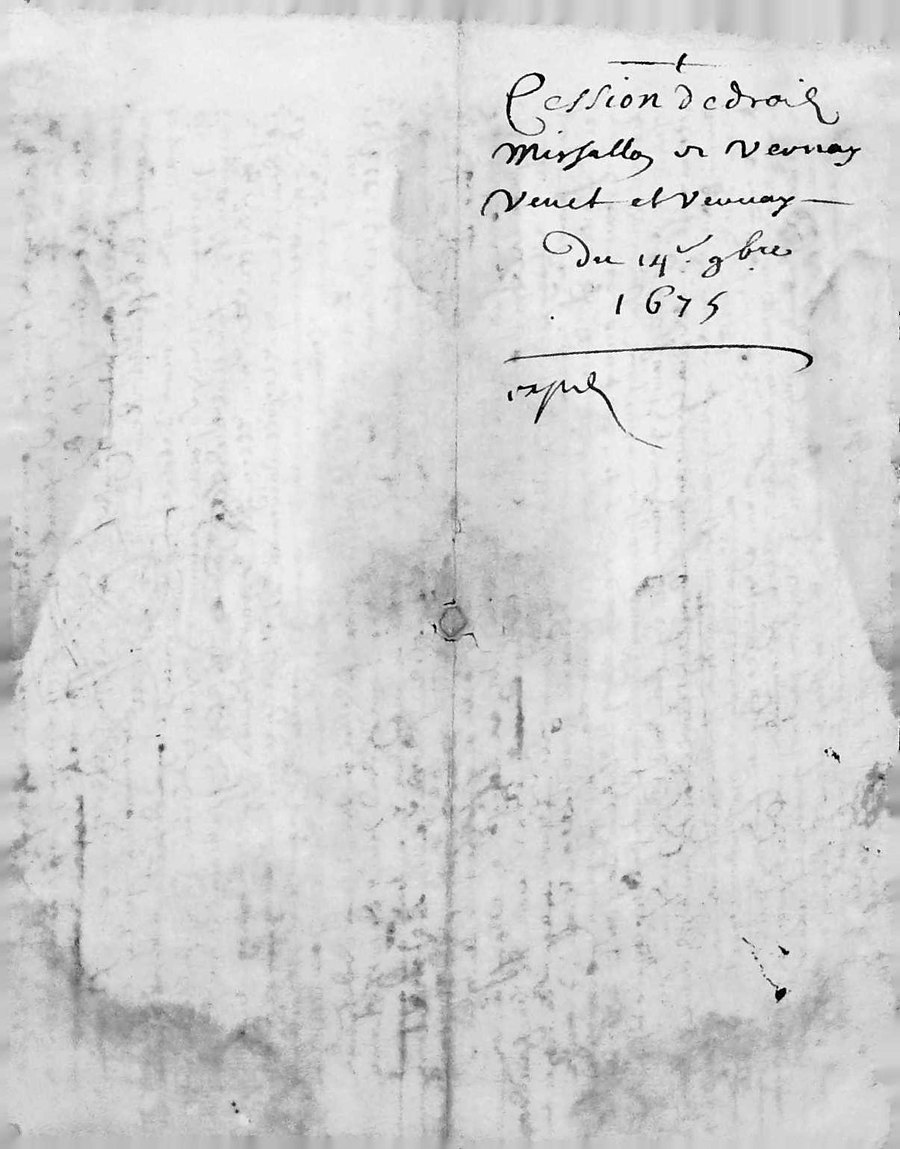 Cession de droit
Missallo et Vernay
Venet et Vernay
Du 14e 9bre
1675
expd